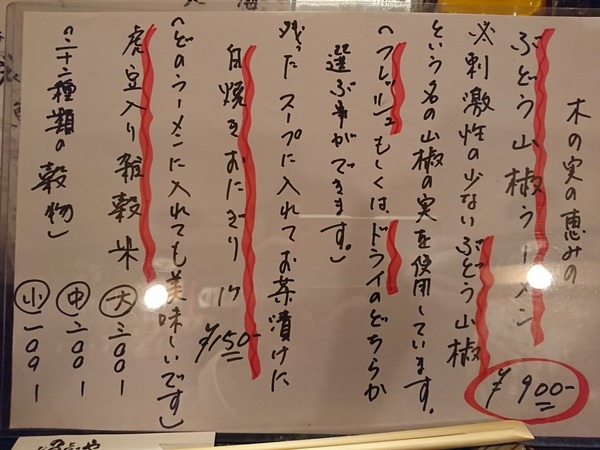 木の実の恵みの
ぶどう山椒ラーメン
¥900-
※刺激性の少ないぶどう山椒
という名の山椒の実を使用しています。
（フレッシュもしくはドライのどちらか
選ぶ事ができます。）
残ったスープに入れてお茶漬けに
白焼きおにぎり 1ケ ¥150-
（どのラーメンに入れても美味しいです）
虎豆入り雑穀米 大 三〇〇1
中 二〇〇1
（二十二種類の穀物） 小 一〇〇1